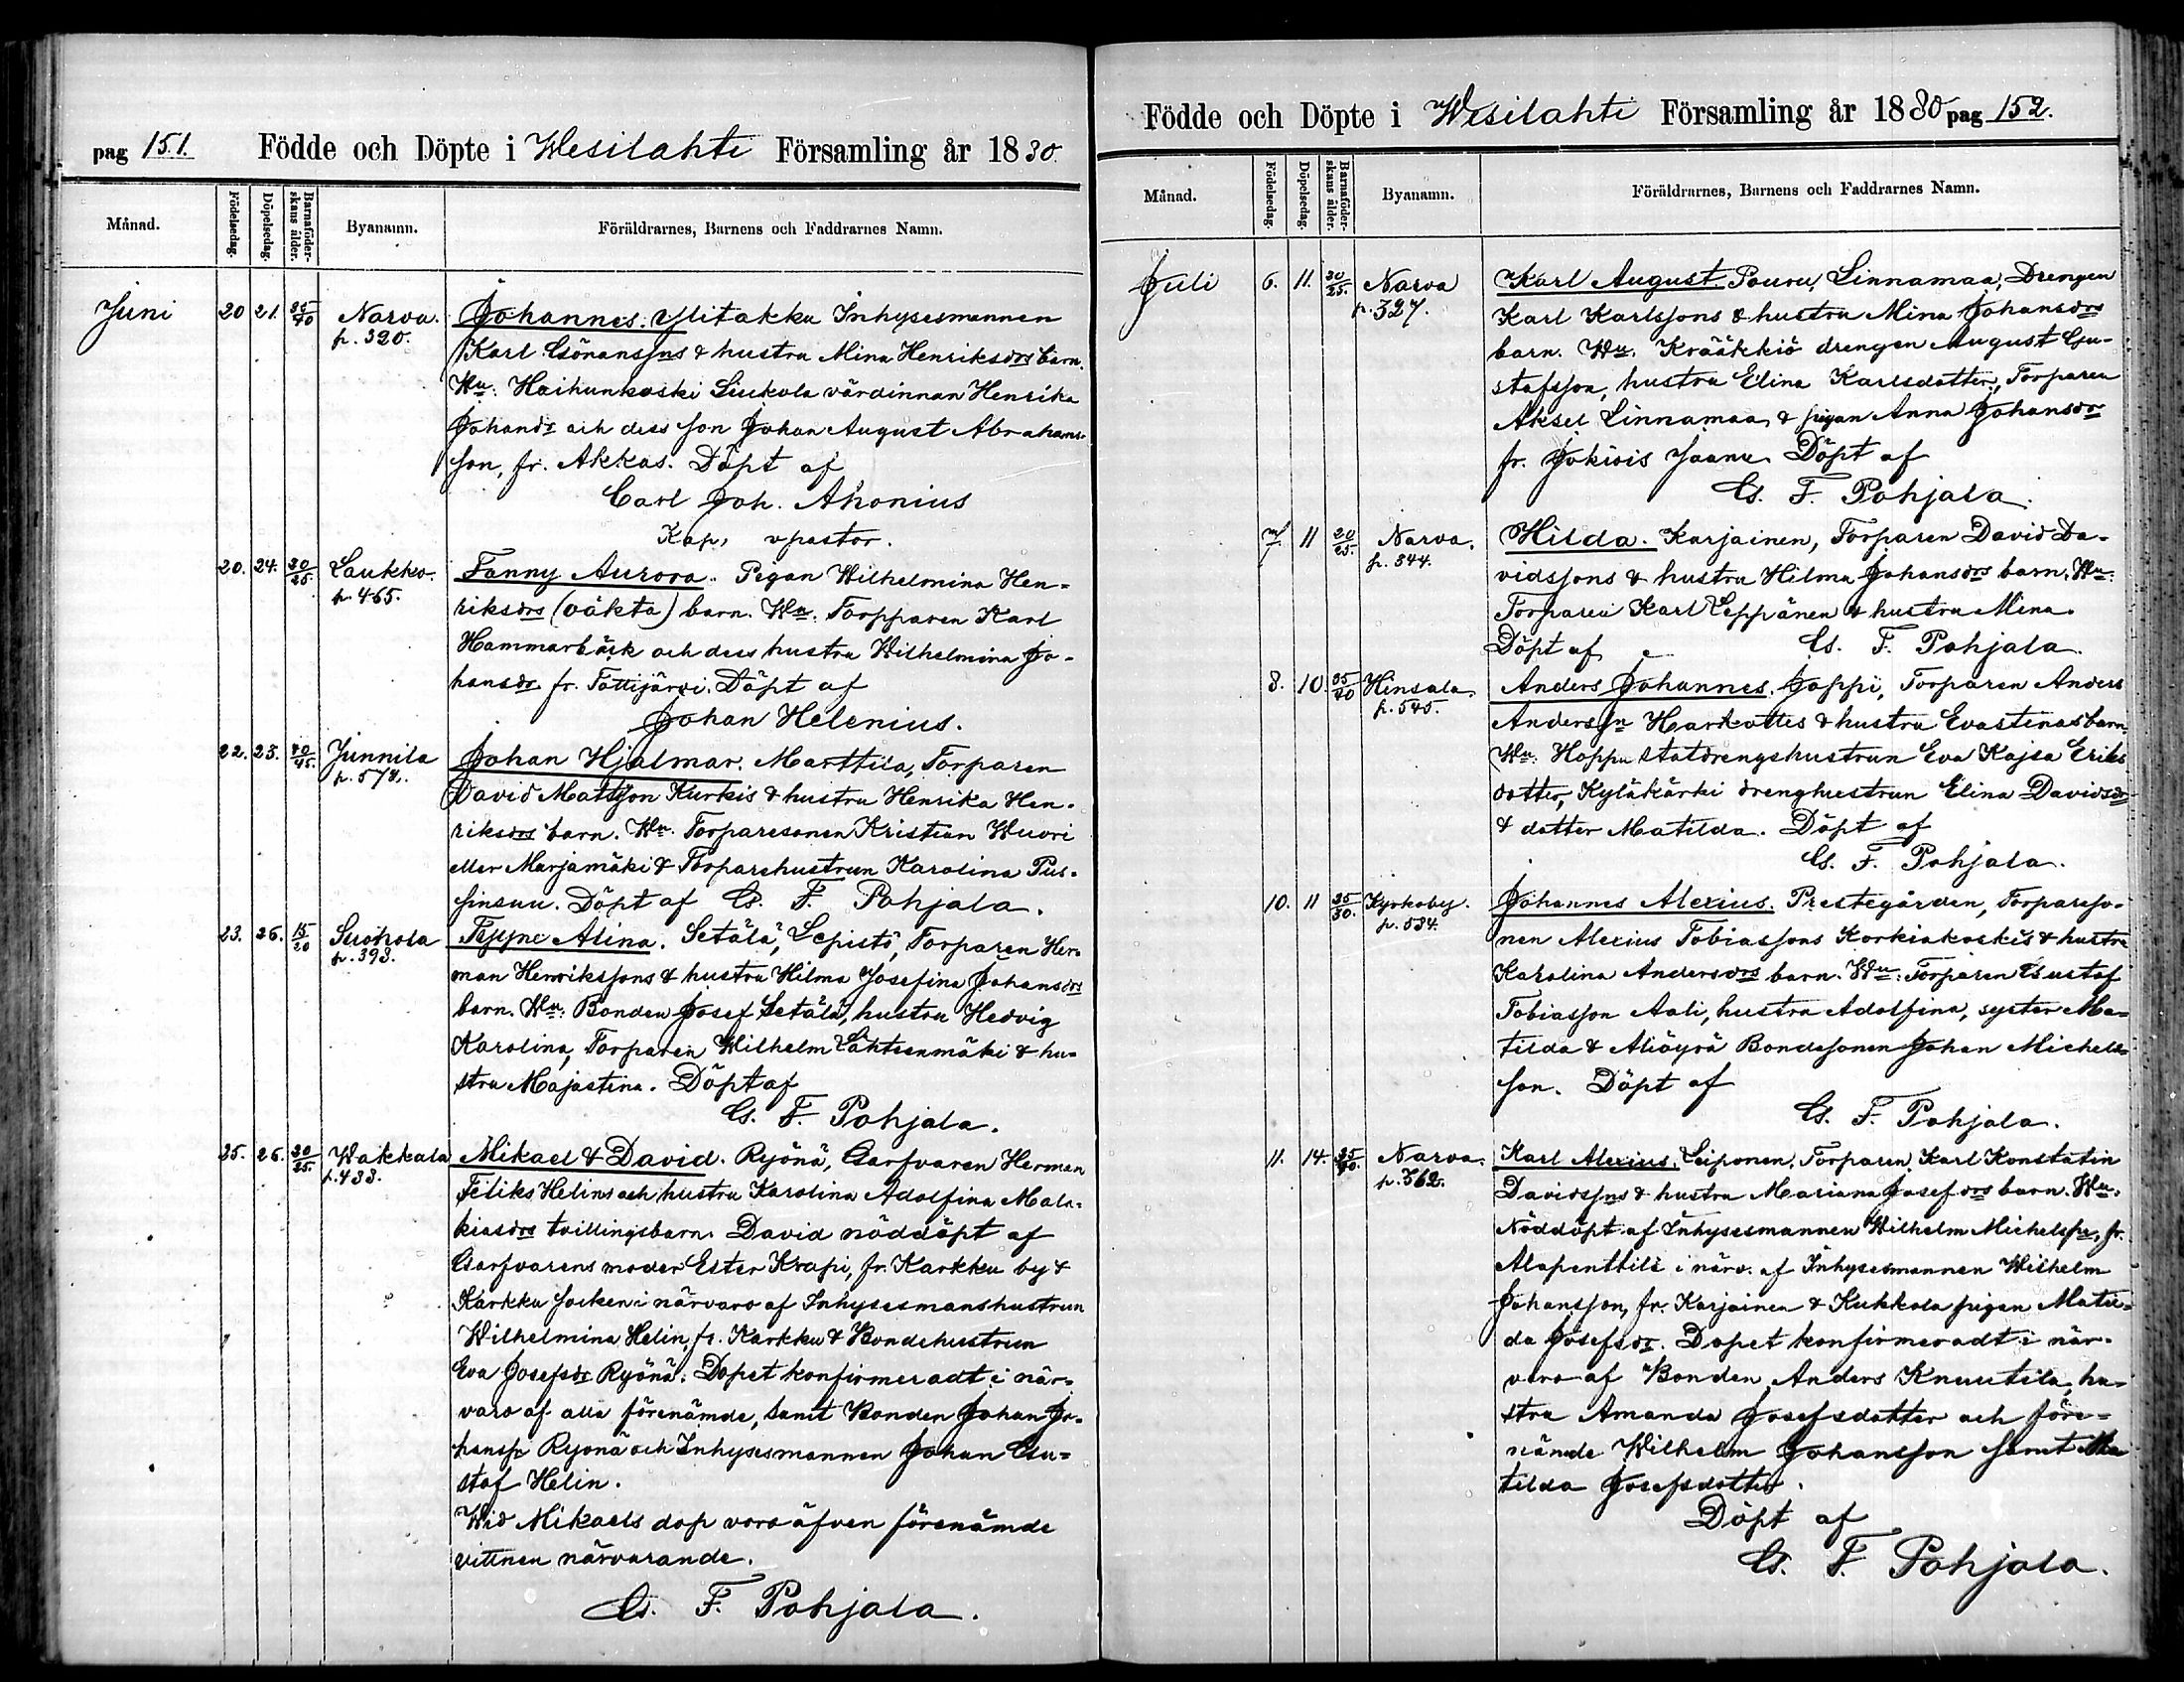 pag 151. Födde och Döpte i Wesilahti Församling år 1880.
Månad. Födelsedag. Döpelsedag. Barnaföderskans ålder. Byanamn. Föräldrarnes, Barnens och Faddrarnes Namn.
Juni 20 21. 35/40 Narva. Johannes. Ylitakku Inhysesmannen
p. 390. Karl Gönanssns & hustru Mina Henriksdrs barn.
Wn: Haihunkoski Liukola värdinnan Henrika
Johansdr och dess son Johan August Abraham-
son, fr. Akkas. Döpt af
Carl Joh. Ahonius
Kap. vpastor.
20. 24. 20/25 Laukko. Fanny Aurora. Pigan Wilhelmina Hen-
p. 465. riksdrs (oäkta) barn. Wn. Torpparen Karl
Hammarbäck och dess hustru Wilhelmina Jo-
hansdr fr. Tottijärvi. Döpt af
Johan Helenius.
22. 23. 40/45. Junnila Johan Hjalmar. Marttila, Torparen
p. 574. David Mattsson Kurkis & hustru Henrika Hen-
riksdrs barn. Wn. Torparesonen Kristian Wuori
eller Marjamäki & Torparehustrun Karolina Pus-
sinsuu. Döpt af G. F. Pohjala.
23. 26. 15/20 Suokola Tyyne Alina. Setälä, Lepistö, Torparen Her-
p. 393. man Henrikssons & hustru Hilma Josefina Johansdrs
barn. Wn: Bonden Josef Setälä, hustru Hedvig
Karolina, Torparen Wilhelm Lähteenmäki & hu-
stru Majastina. Döpt af
G. F. Pohjala.
25. 26. 20/25. Wakkala Mikael & David. Ryönä, Garfvaren Herman
p. 433. Feliks Helins och hustru Karolina Adolfina Mala-
kiasdrs tvillingsbarn. David nöddöpt af
Garfvarens moder Ester Krapi, fr. Karkku by &
Karkku socken i närvaro af Inhysesmanshustrun
Wilhelmina Helin, fr. Karkku & Bondehustrun
Eva Josefsdr Ryönä. Dopet konfirmeradt i när-
varo af alla förenämde, samt Bonden Johan Jo-
hanssn Ryönä och Inhysesmannen Johan Gu-
staf Helin.
Wid Mikaels dop voro äfven förenämde
vittnen närvarande.
G. F. Pohjala.
Födde och Döpte i Wesilahti Församling år 1880 pag 152.
Månad. Födelsedag. Döpelsedag. Barnaföderskans ålder. Byanamn. Föräldrarnes, Barnens och Faddrarnes Namn.
Juli 6. 11. 20/25. Narva Karl August. Pouru, Linnamaa, Drengen
p. 327. Karl Karlssons & hustru Mina Johansdrs
barn. Wn. Krääkkiö drengen August Gu-
stafsson, hustru Elina Karlsdotter, Torparen
Aksel Linnamaa, & pigan Anna Johansdr
fr. Jokiois Jaanu. Döpt af
G. F. Pohjala.
11 20/25. Narva. Hilda. Karjainen, Torparen David Da-
p. 344. vidssons & hustru Hilma Johansdrs barn. Wn.
Torparen Karl Leppänen & hustru Mina.
Döpt af G. F. Pohjala.
8. 10. 35/40 Hinsala. Anders Johannes. Joppi, Torparen Anders
p. 545. Anderssn Harkottis & hustru Evastinas barn.
Wn. Hoppu statdrengshustrun Eva Kajsa Eriks
dotter, Kyläkärki drenghustrun Elina Davidsdr
& dotter Matilda. Döpt af
G. F. Pohjala.
10. 11 25/30. Kyrkoby. Johannes Alexius. Prestegården, Torpareso-
p. 584. nen Alexius Tobiassons Korkiakoskis & hustru
Karolina Andersdrs barn. Wn: Torparen Gustaf
Tobiasson Aali, hustru Adolfina, syster Ma-
tilda & Aliöyrä Bondesonen Johan Michels-
son. Döpt af
G. F. Pohjala.
11. 14. 35/40. Narva. Karl Alexius. Leiponen, Torparen Karl Konstatin
p. 362. Davidssns & hustru Mariana Josefsdrs barn. Wn.
Nöddöpt af Inhysesmannen Wilhelm Michelssn, fr.
Alapenttilä i närv. af Inhysesmannen Wilhelm
Johansson, fr. Karjainen & Kukkola pigan Matil-
da Josefsdr. Dopet konfirmeradt i när-
varo af Bonden Anders Knuutila, hu-
stru Amanda Josefsdotter och före-
nämde Wilhelm Johansson samt Ma
tilda Josefsdotter.
Döpt af
G. F. Pohjala.